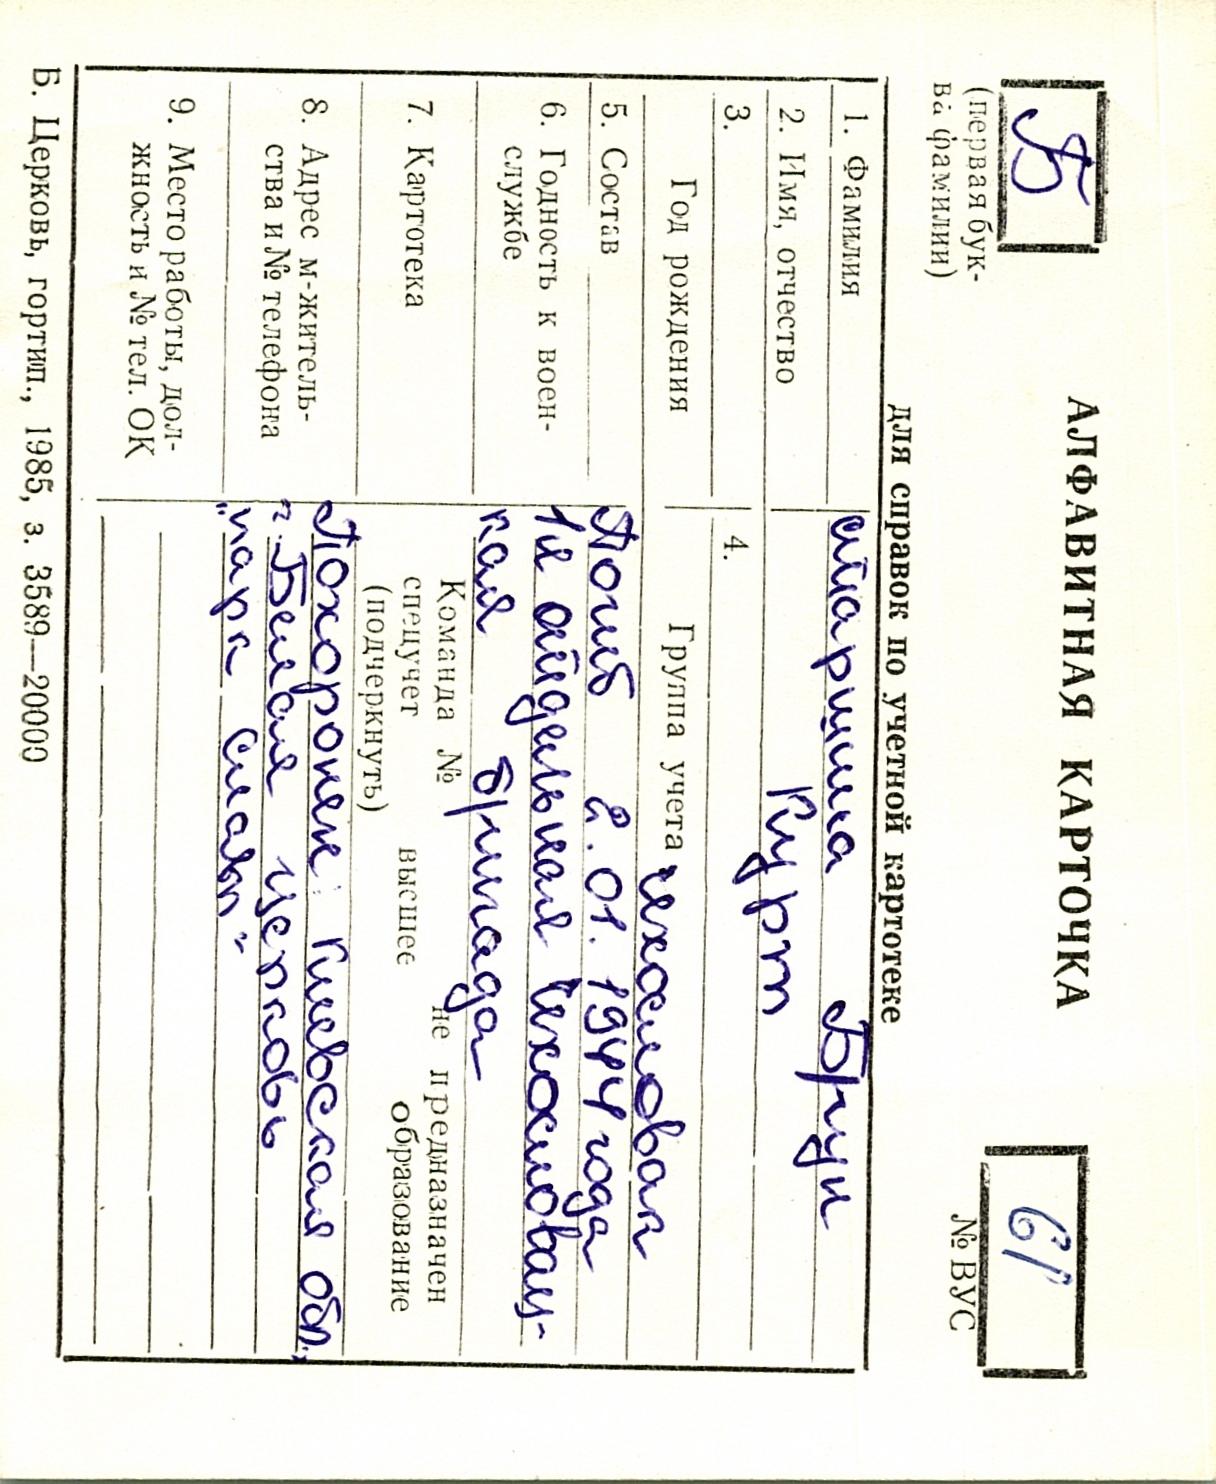 АЛФАВИТНАЯ КАРТОЧКА
Б
(первая бук-
ва фамилии)
61
№ ВУС
для справок по учетной картотеке
1. Фамилия старшина Брун
2. Имя, отчество Курт
3. Год рождения
4. Группа учета чехословак
5. Состав Погиб 2.01.1944 года
6. Годность к воен- 1я отдельная Чехословац-
службе кая бригада
7. Картотека Команда № не предназначен
спецучет высшее образование
(подчеркнуть)
8. Адрес м-житель- Похоронен: Киевская обл.,
ства и № телефона г. Белая церковь
"парк Слав"
9. Место работы, дол-
жность и № тел. ОК
Б. Церковь, гортип., 1985, з. 3589—20000